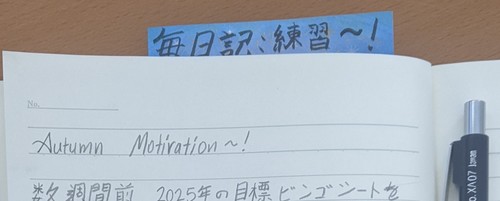 毎日記:練習～!
No.
Autumn Motivation～!
数週間前 2025年の目標ビンゴシートを